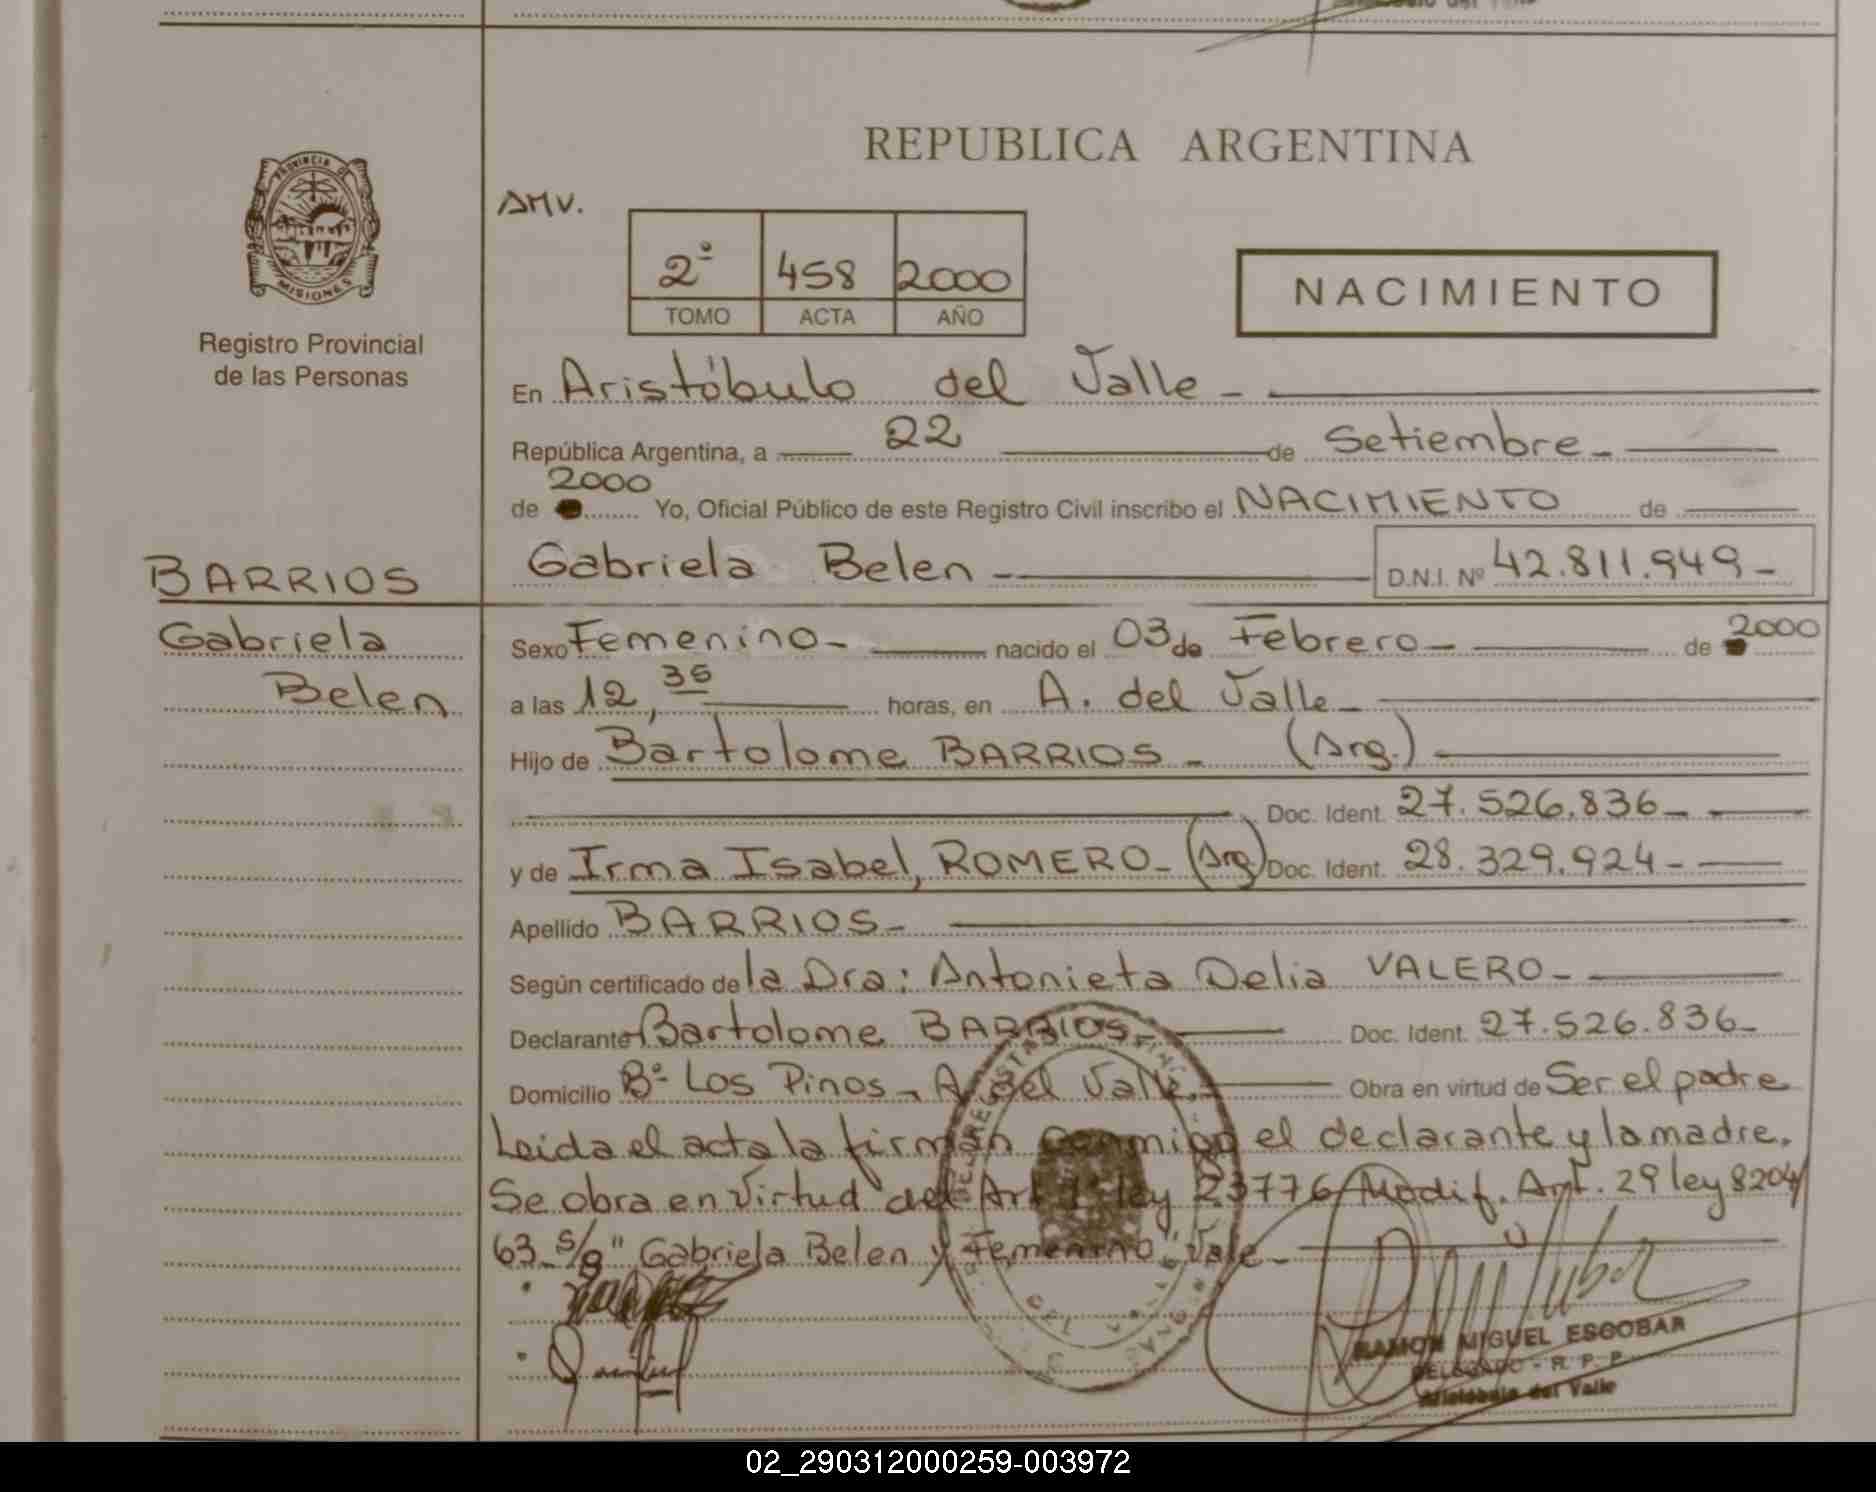 REPUBLICA ARGENTINA
PROVINCIA DE
MISIONES
Registro Provincial
de las Personas
AMV.
2º 458 2000
TOMO ACTA AÑO
NACIMIENTO
En Aristóbulo del Valle -
República Argentina, a 22 de Setiembre -
2000
de Yo, Oficial Público de este Registro Civil inscribo el NACIMIENTO de
BARRIOS
Gabriela Belen - D.N.I. Nº 42.811.949 -
Gabriela
Belen
Sexo Femenino - nacido el 03 de Febrero - de 2000
a las 12, 35 horas, en A. del Valle -
Hijo de Bartolome BARRIOS - (Arg.)
Doc. Ident. 27.526.836 -
y de Irma Isabel, ROMERO - (Arg) Doc. Ident. 28.329.924 -
Apellido BARRIOS -
Según certificado de la Dra: Antonieta Delia VALERO -
Declarante Bartolome BARRIOS - Doc. Ident. 27.526.836 -
Domicilio Bº Los Pinos - A. del Valle. - Obra en virtud de Ser el padre
Leida el acta la firman conmigo el declarante y la madre.
Se obra en virtud del Art 1º ley 23776 Modif. Art. 29 ley 8204/
63 - S/B "Gabriela Belen y Femenino" Vale -
RAMON MIGUEL ESCOBAR
DELEGADO - R. P. P.
Aristóbulo del Valle
02_290312000259-003972